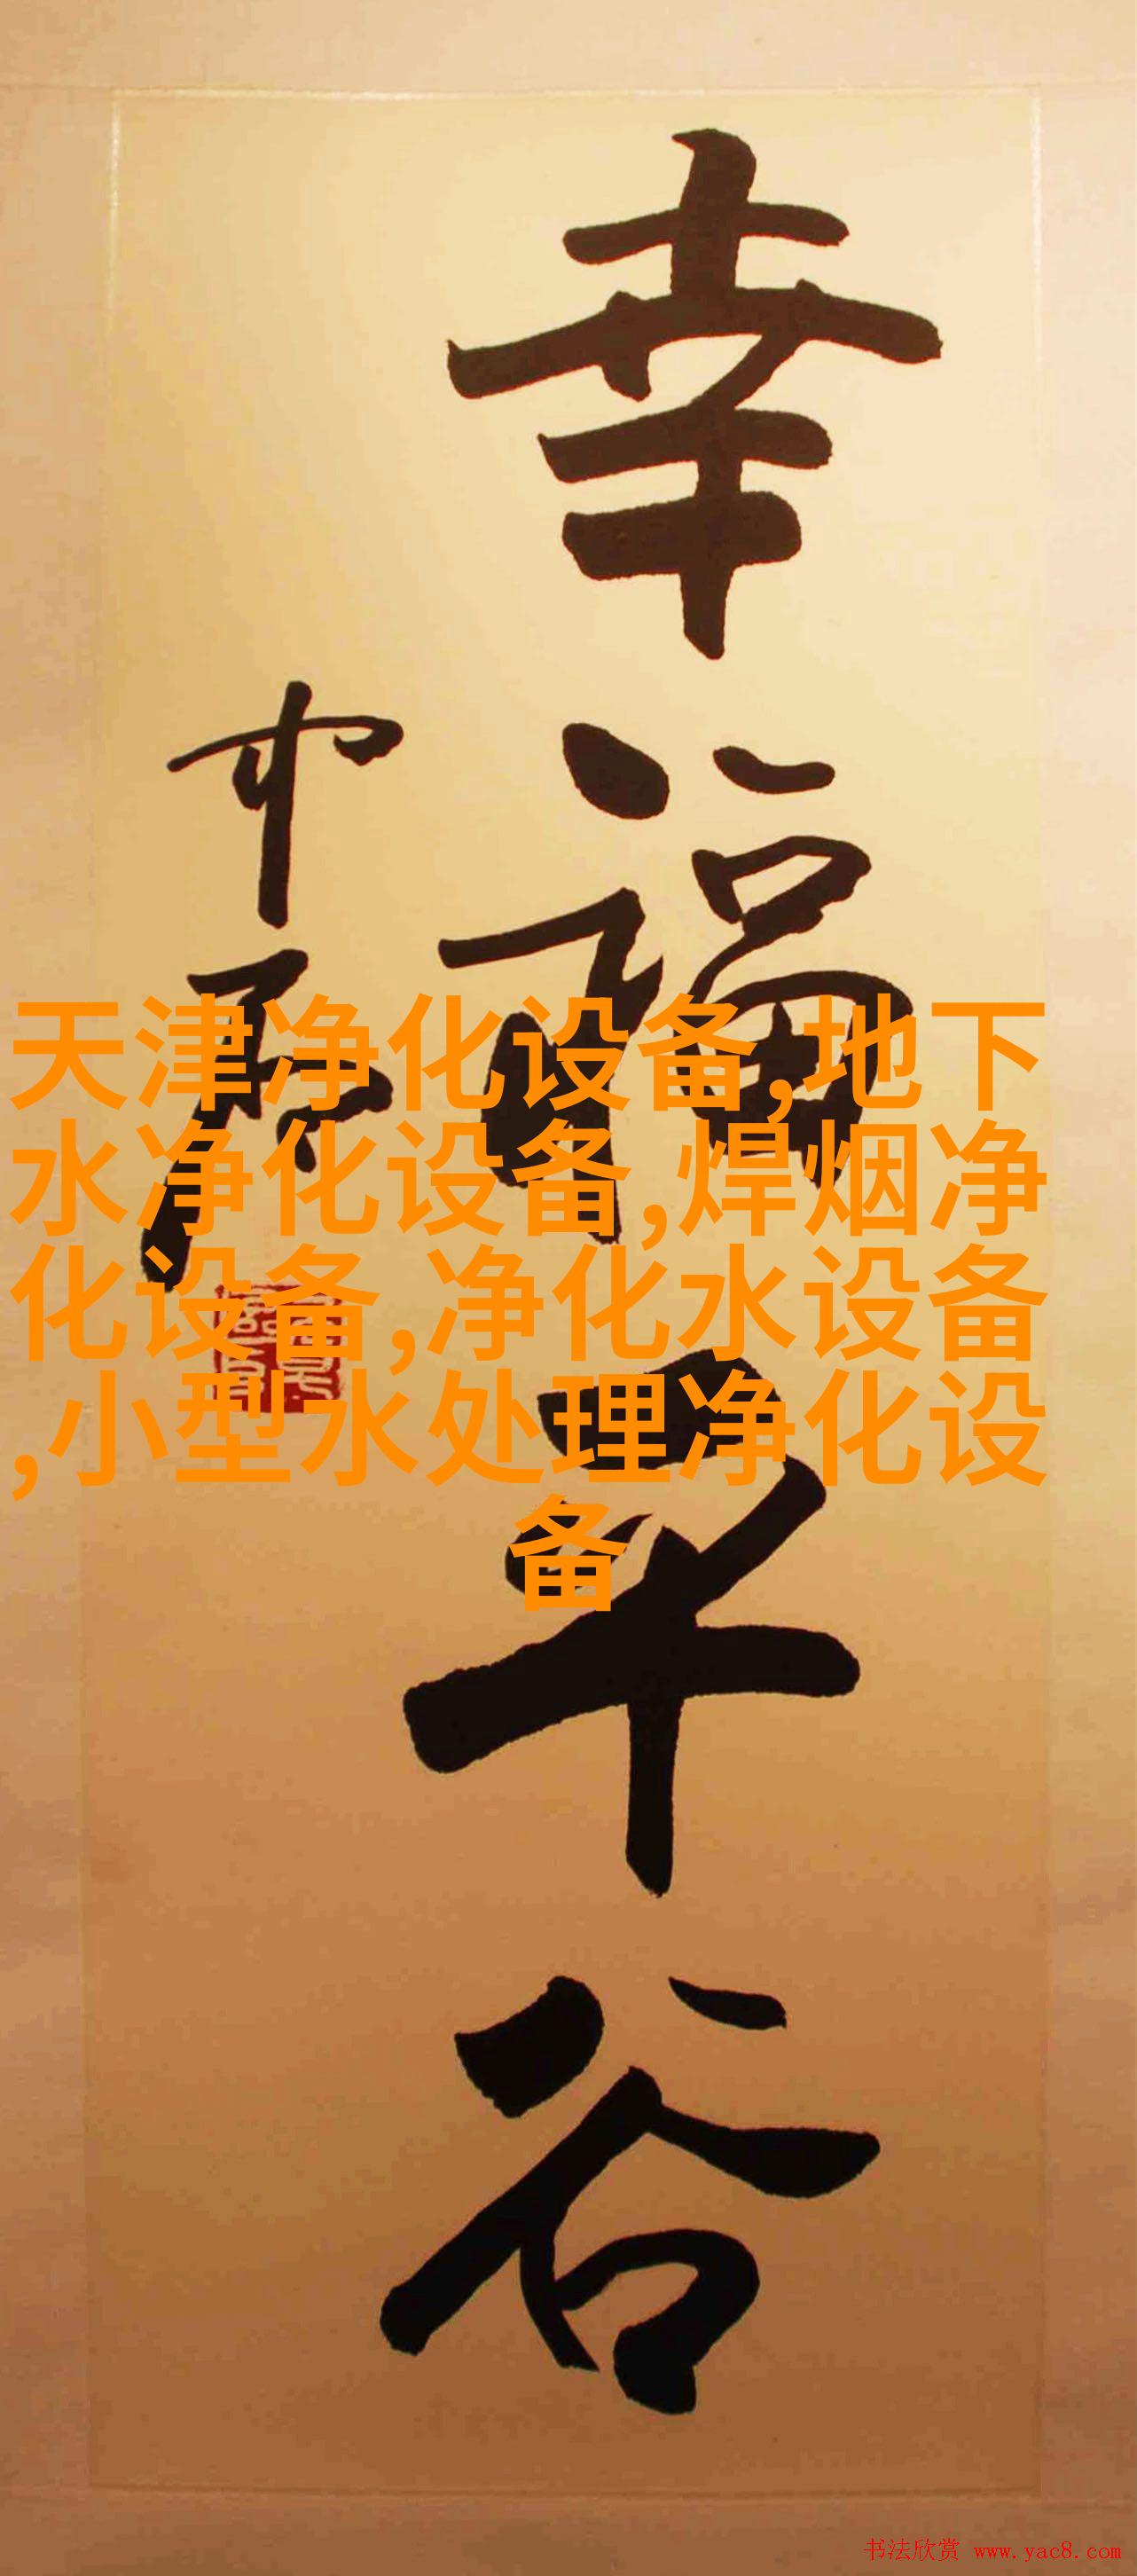 幸福平谷
天津净化设备,地下
水净化设备,焊烟净
化设备,净化水设备
,小型水处理净化设
备
书法欣赏 www.yac8.com